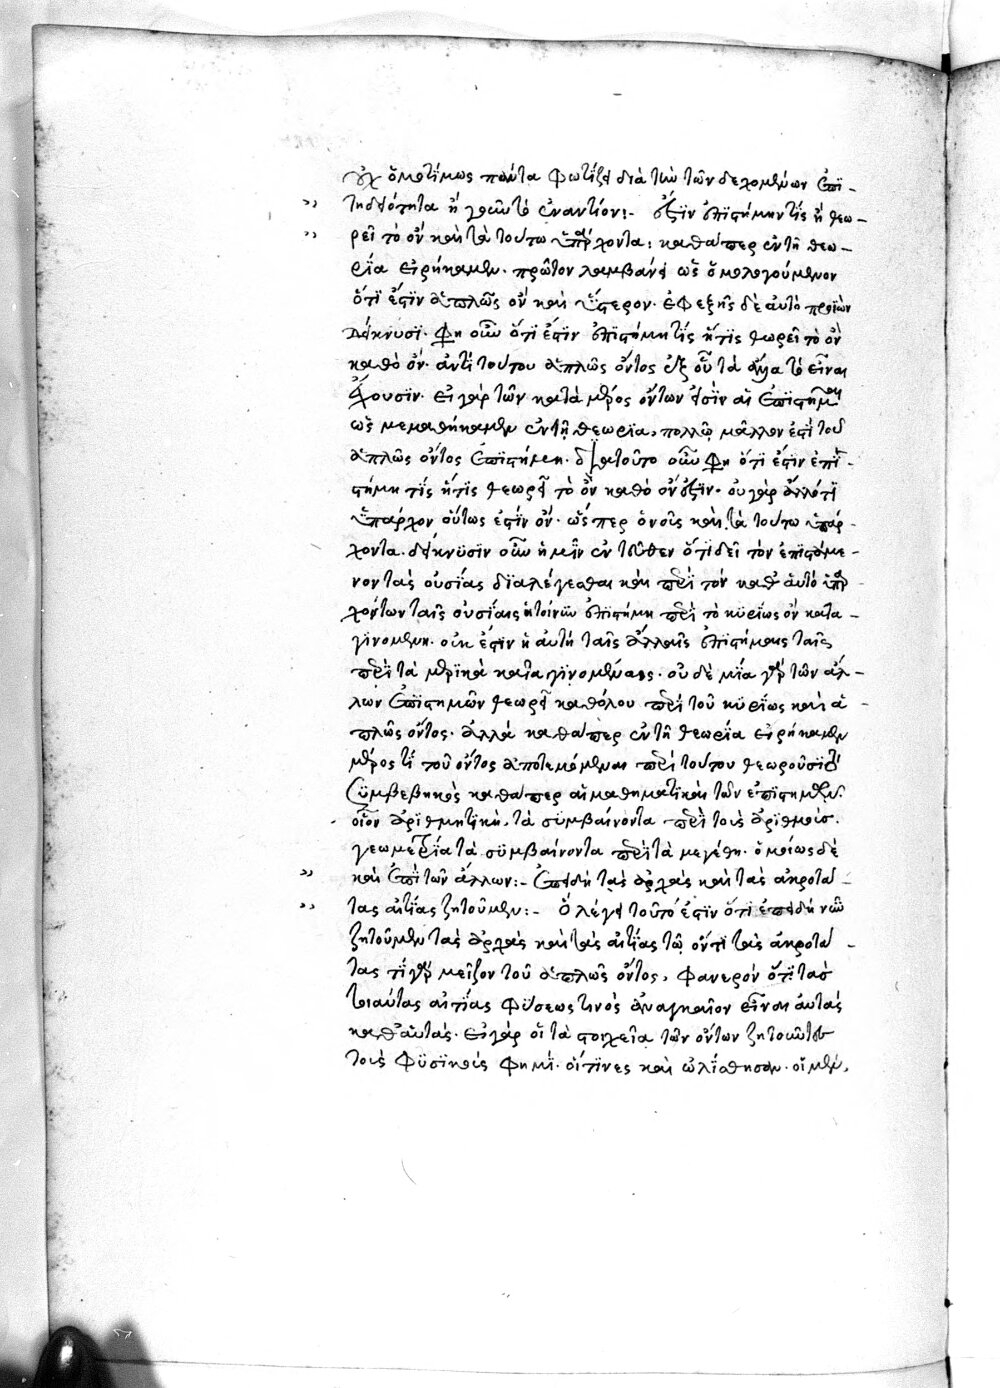 οὐχ ὁμοτίμως πάντα φωτίζει διὰ τὴν τῶν δεχομένων ἐπϊ-
τηδειότητα ἢ τοὐναντίον:- ἔστϊν ἐπϊστήμη τὶς ἣ θεω-
ρεῖ τὸ ὂν καὶ τὰ τούτω ὑπάρχοντα: καθάπερ ἐν τῆ θεω-
ρΐα εἰρήκαμεν. πρῶτον λαμβάνει ὡς ὁμολογούμενον
ὅτϊ ἐστϊν ἁπλῶς ὂν καὶ ὕστερον. ἐφεξῆς δὲ αὐτὸ προϊὼν
δείκνυσϊ. φησὶ οὖν ὅτϊ ἐστϊν ἐπϊστήμη τίς ἥτϊς θεωρεῖ τὸ ὂν
καθὸ ὄν. ἀντὶ τούτου ἁπλῶς ὄντος ἐξ οὗ τὰ ἄλλα τὸ εἶναι
ἔχουσϊν. εἰ γὰρ τῶν κατὰ μέρος ὄντων εἰσΐν αἱ ἐπϊστῆμαι
ὡς μεμαθήκαμεν ἐν τῆ θεωρΐα, πολλῶ μᾶλλον ἐστὶ τοῦ
ἁπλῶς ὄντος ἐπϊστήμη. δϊατοῦτο οὖν φησὶ ὅτι ἐστϊν ἐπϊ-
στήμη τΐς ἥτϊς θεωρεῖ τὸ ὂν καθὸ ὄν ἐστϊν. οὐ γὰρ ἄλλό τϊ
ὑπάρχον οὕτως ἐστΐν ὄν. ὥσπερ ὁ νοῦς καὶ τὰ τούτω ὑπάρ-
χοντα. δείκνϋσϊν οὖν ἡμῖν ἐντεῦθεν ὅτϊ δεῖ τὸν ἐπϊστήμο-
νον τὰς οὐσΐας δϊαλέγεσθαι καὶ περὶ τὸν καθ' αὑτὸ ὑπαρ-
χόντων ταῖς οὐσΐαις ἡ τοίνϋν ἐπϊστήμη περὶ τὸ κϋρΐως ὂν κατα-
γϊνομένη. οὐκ ἔστϊν ἡ αὐτὴ ταῖς ἄλλαις ἐπϊστήμαις ταῖς
περὶ τὰ μερϊκὰ καταγϊνομέναις. οὐδὲ μΐα γὰρ τῶν ἄλ-
λων ἐπϊστημῶν θεωρεῖ καθόλου περὶ τοῦ κϋρΐως καὶ ἁ-
πλῶς ὄντος. ἀλλὰ καθάπερ ἐν τῆ θεωρΐα εἰρήκαμεν
μέρος τΐ τοῦ ὄντος ἀποτεμόμεναι περὶ τούτου θεωροῦσϊ τὸ
συμβεβηκὸς καθάπερ αἱ μαθηματϊκαὶ τῶν ἐπϊστημῶν.
οἷον ἀρϊθμητϊκὴ, τὰ συμβαίνοντα περὶ τοὺς ἀρϊθμοὺς.
γεωμετρΐα τὰ συμβαίνοντα περὶ τὰ μεγέθη. ὁμοίως δὲ
καὶ ἐπὶ τῶν ἄλλων:- ἐπειδὴ τὰς ἀρχὰς καὶ τὰς ἀκροτά-
τας αἰτΐας ζητοῦμεν:- ὃ λέγει τοῦτό ἐστϊν ὅτϊ ἐπειδὴ νῦν
ζητοῦμεν τὰς ἀρχὰς καὶ τὰς αἰτΐας τῶ ὄντϊ τὰς ἀκροτά-
τας τΐ γὰρ μεῖζον τοῦ ἁπλῶς ὄντος, φανερὸν ὅτϊ τὰς
τοιαύτας αἰτΐας φϋσεως τινὸς ἀναγκαῖον εἶναι αὐτὰς
καθ' αὑτὰς. εἰ γὰρ οἱ τὰ στοιχεῖα τῶν ὄντων ζητοῦντες
τοὺς φϋσϊκοὺς φημΐ. οἵτϊνες καὶ ὠλΐσθησαν. οἱ μὲν,